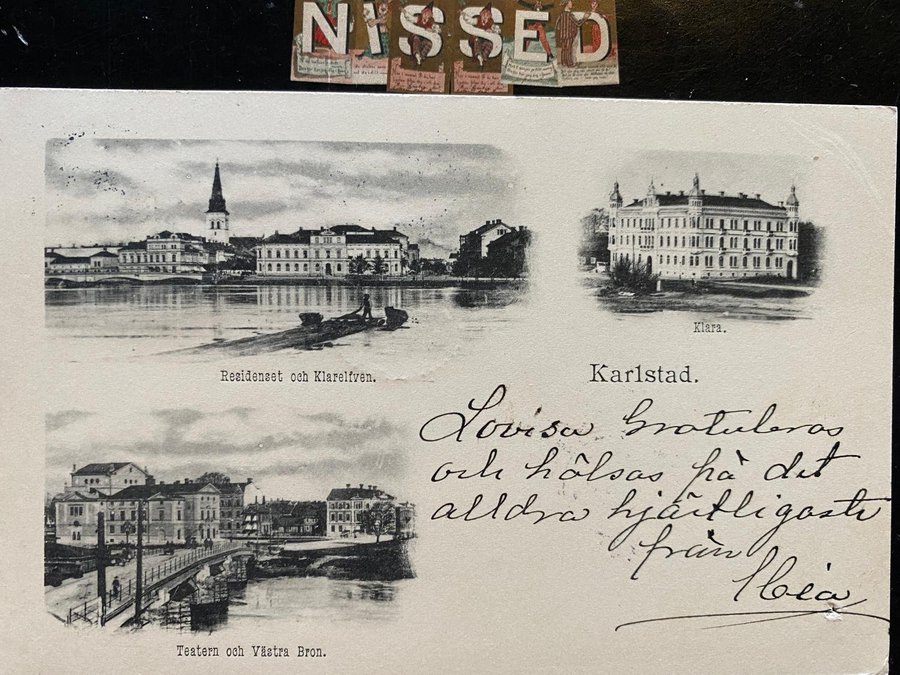 NISSED
Residenset och Klarelfven.
Klara.
Karlstad.
Lovisa Gratuleras
och hälsas på det
alldra hjärtligaste
från
Teatern och Västra Bron.